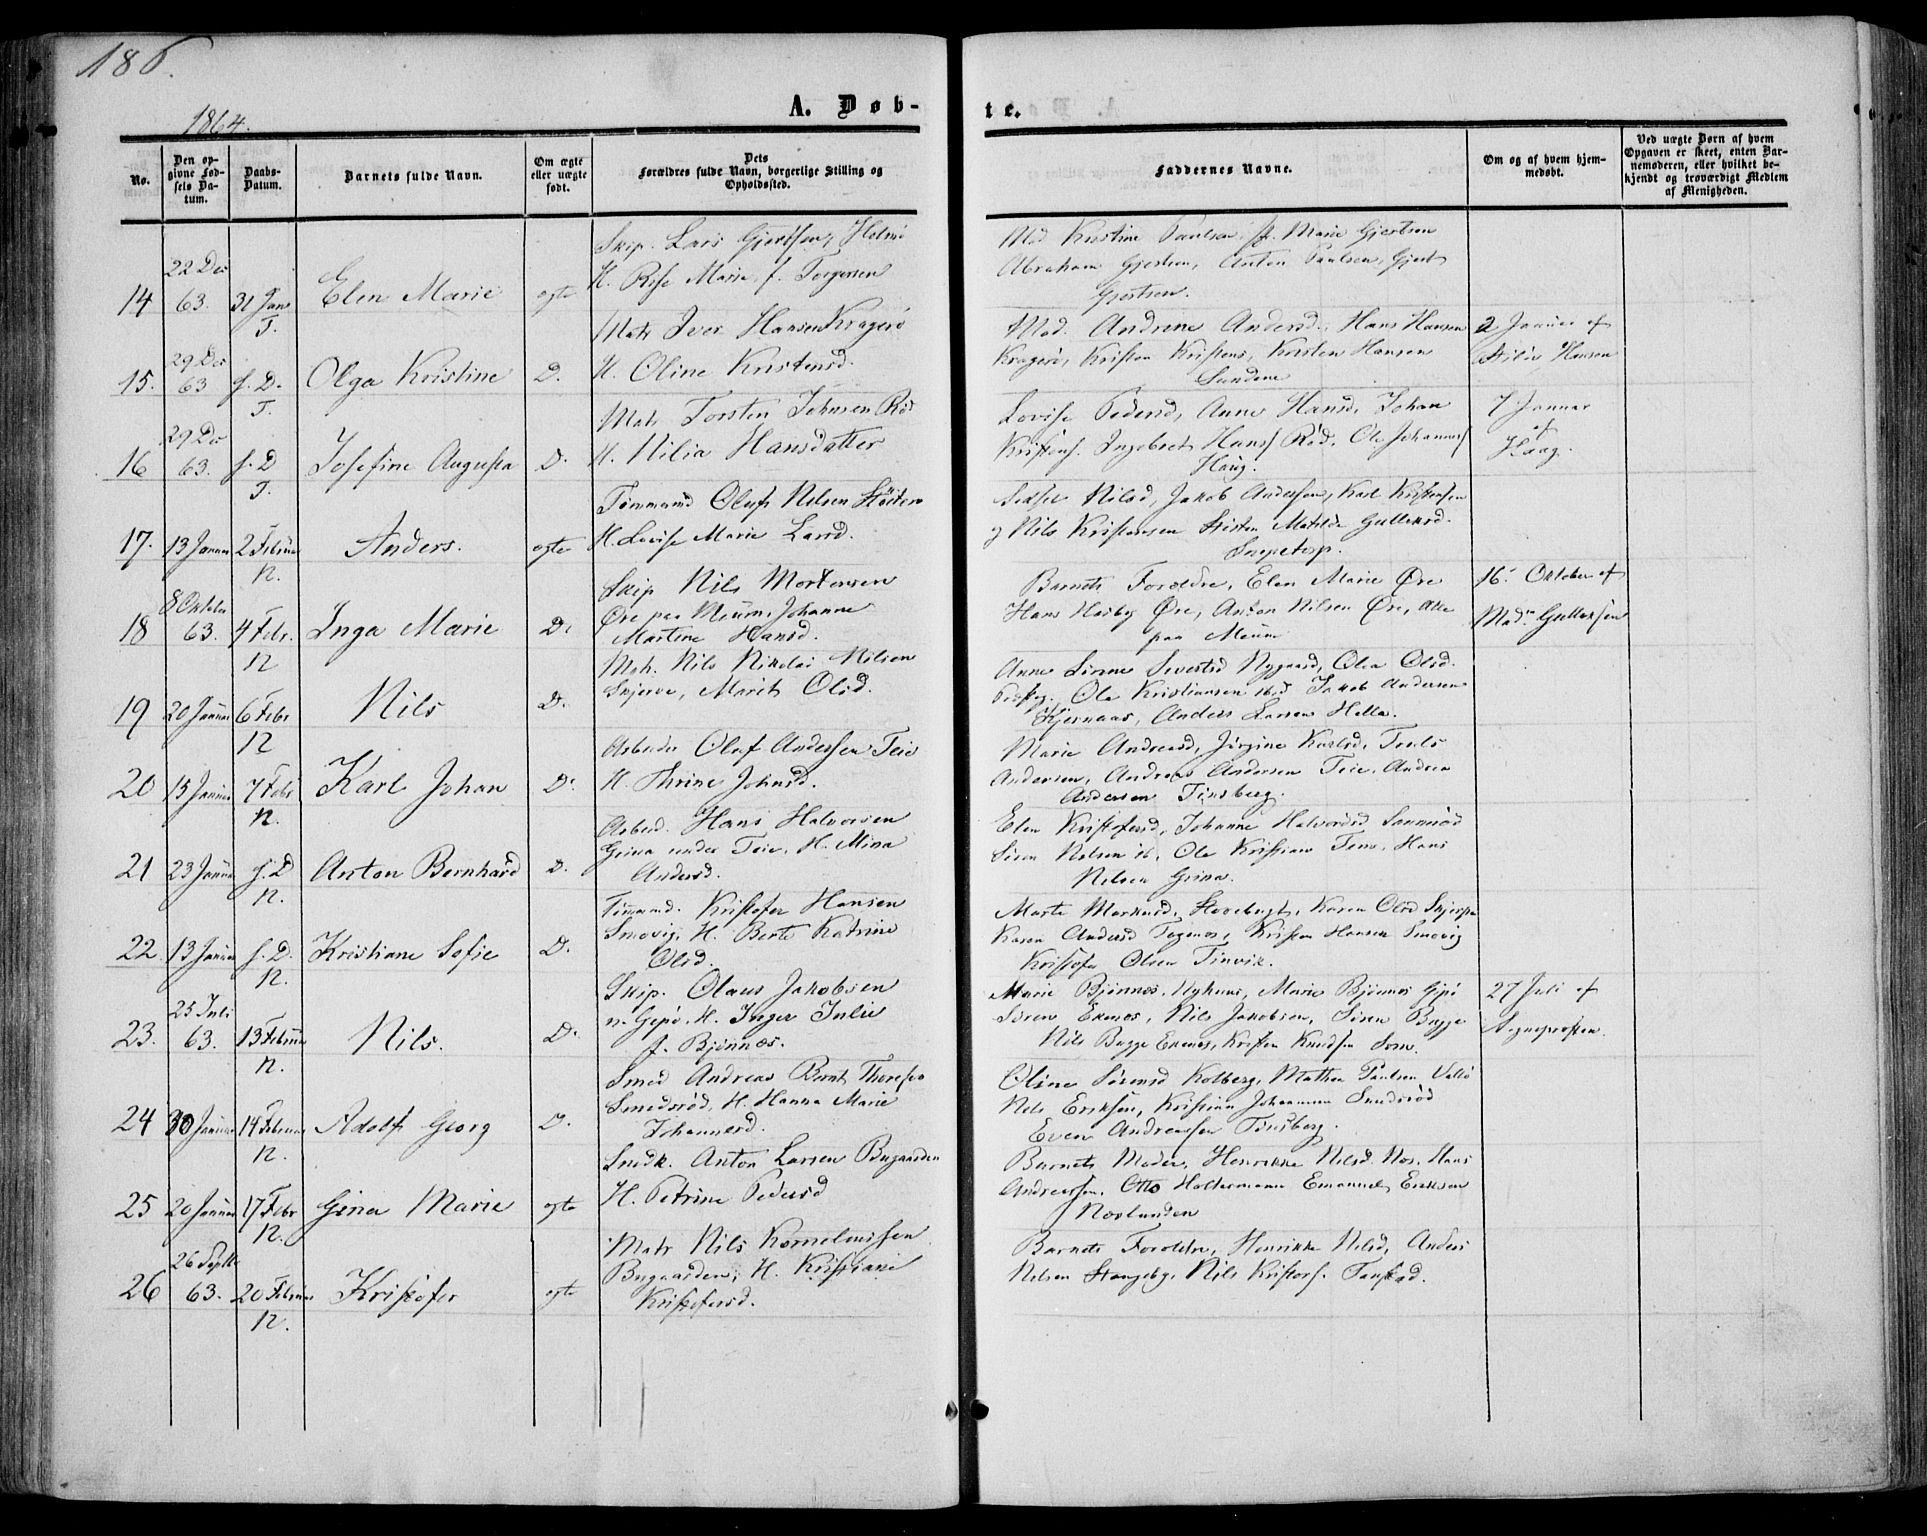 186.
1864.
A. Døb-
te.
No.
Den op-
givne Fød-
sels Da-
tum.
Daabs-
Datum.
Barnets fulde Navn.
Om ægte
eller uægte
født.
Dets
Forældres fulde Navn, borgerlige Stilling og
Opholdssted.
Faddernes Navne.
Om og af hvem hjem-
medøbt.
Ved uægte Børn af hvem
Opgaven er skeet, enten Bar-
nemoderen, eller hvilket be-
kjendt og troværdigt Medlem
af Menigheden.
14
22 Dec
63.
31 Jan
T.
Elen Marie
egte
Skip. Lars Gjertsen, Holmø
H. Rise Marie f. Torgersen
Mad Kristine Paulsen, J. Marie Gjertsen
Abraham Gjertsen, Anton Paulsen, Gjert
Gjertsen.
15.
29 Dec
63
f. D.
T.
Olga Kristine
D.
Matr Iver Hansen Kragerø
H. Oline Kristensd.
Mad. Andrine Andersd, Hans Hansen
Kragerø, Kristen Kristens, Kristen Hansen
Sundene
2 Januar af
Hansen
16
29 Dec
63.
f. D
T.
Josefine Augusta
D.
Matr Torsten Johnsen Rød
H. Nilia Hansdatter
Lovise Pedersd, Anne Hansd, Johan
Kristens. Ingebret Hanss Rød, Ole Johannes
Haug.
7 Januar
af
Haag.
17.
13 Januar
2 Februar
N.
Anders.
egte
Tømmermd Oluf Nilsen
H. Lovise Marie Larsd.
Nilsd, Jakob Andersen, Karl Kristensen
og Nils Kristensen Matilde Gulliksd.
Snepetorp.
18
8 Oktober
63.
4 Febr.
N
Inga Marie
D.
Skip Nils Mortensen
Øre paa Meum, Johanne
Martine Hansd.
Barnets Forældre, Elen Marie Øre
Hans Haiby Øre, Anton Nilsen Øre, alle
paa Meum
16. Oktober af
Madm Gulliksen
19
20 Januar
6 Febr
N
Nils
D.
Matr. Nils Nikolai Nilsen
Skjerve, Marit Olsd.
Anne Sirene Sivertsd Nygaard, Olea Olsd.
Ole Kristiansen ibid Jakob Andersen
Kjernaas, Anders Larsen Hella.
20
15 Januar
7 Febr
N.
Karl Johan
D.
Arbeider Oluf Anderssen Teie
H. Thrine Johnsd.
Marie Andreasd, Jørgine Karlsd, Truls
Andersen, Andreas Andersen Teie, Andrea
Andersen Tønsberg.
21
23 Januar
f. D
N.
Anton Bernhard
D.
Arbeid. Hans Halvorsen
Grina under Teie, H. Mina
Andersd.
Elen Kristofersd, Johanne Halvorsd Sannrød
Søren Nilsen ib, Ole Kristians Hans
Nilsen Grina.
22.
13 Januar
f. D.
N.
Kristiane Sofie
D.
Tømmermd. Kristofer Hansen
Smovig, H. Berte Katrine
Olsd.
Marte Markusd, Karen Olsd
Karen Andersd Kristen Hansen Smovig
Kristofer Olsen Tinvik.
23.
25 Juli
63.
13 Februar
N.
Nils.
D.
Skip. Olaus Jakobsen
n. Gipø, H. Inger Julie
f. Bjønnæs.
Marie Bjønnæs, Nykuus, Marie Bjønnes Gipø
Søren Ekenes, Nils Jakobsen, Søren Bugge
Nils Bugge Ekenes, Kristen Knudsen Sem.
27 Juli af
Sogneprosten.
24
30 Januar
14 Februar
N.
Adolf Georg
D.
Smed Andreas Bernt Thoresen
Smedsrød, H. Hanna Marie
Johannesd.
Oline Sørensd Kolberg, Mathea Paulsen Vallø
Nils Eriksen, Kristian Johannsen Sundsrød
Even Andreassen Tønsberg.
25
20 Januar
17 Febr
N.
Gina Marie
egte
Snedk. Anton Larsen Bugaarden
H. Petrine Pedersd
Barnets Moder, Henrikke Nilsd. Næs, Hans
Andreassen, Otto Holtermann Emanuel Eriksen
Næslunden
26
26 Septbr
63.
20 Februar
N.
Kristofer
egte
Matr Nils Korneliussen
Bugaarden, H. Kristiane
Kristofersd.
Barnets Forældre, Henrikke Nilsd, Anders
Nilsen Stangeby, Nils Kristofs. Fanstad.